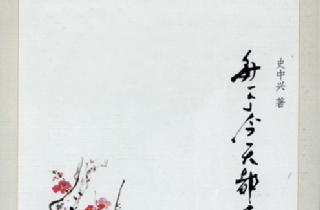 史中兴 著
每个今天都